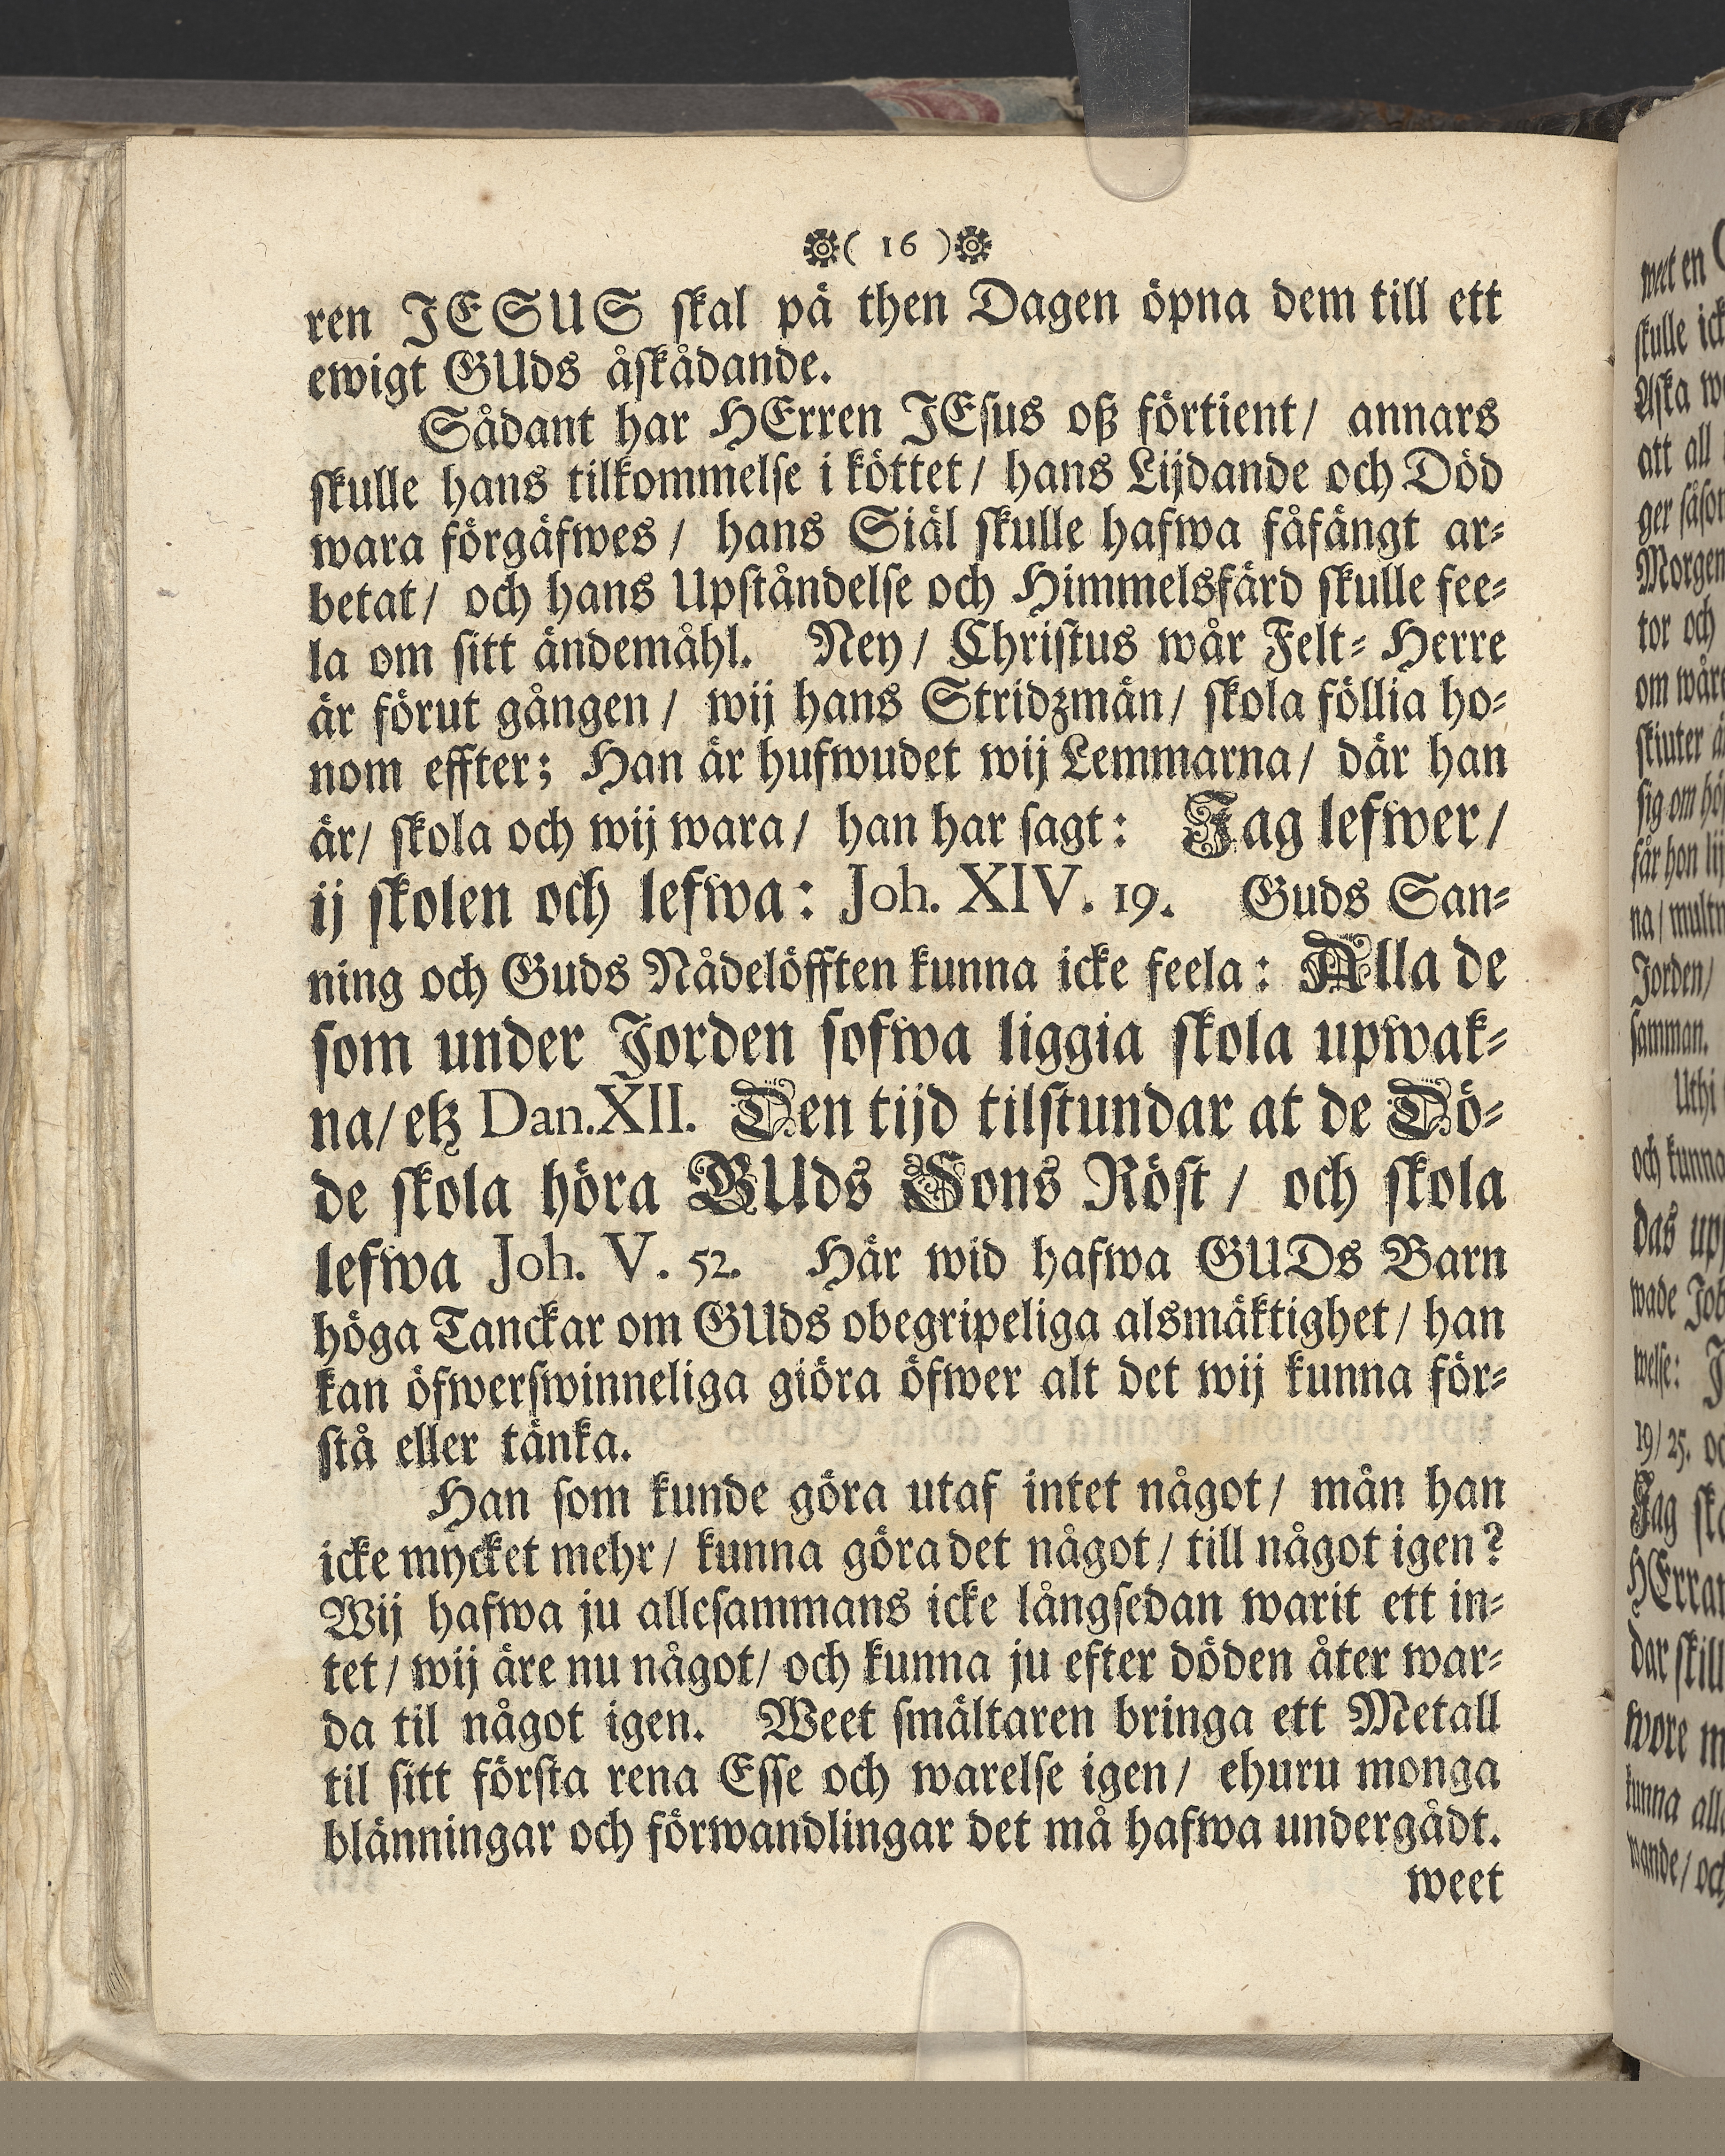 ( 16 )
ren JESUS skal på then Dagen öpna dem till ett
ewigt GUds åskådande.
Sådant har HErren JEsus oß förtient/ annars
skulle hans tilkommelse i köttet/ hans Lijdande och Död
wara förgäfwes/ hans Siäl skulle hafwa fåfängt ar-
betat/ och hans Upståndelse och Himmelsfärd skulle fee-
la om sitt ändemåhl. Ney/ Christus wår Felt-Herre
är förut gången/ wij hans Stridzmän/ skola föllia ho-
nom effter; Han är hufwudet wij Lemmarna/ där han
är/ skola och wij wara/ han har sagt: Jag lefwer/
ij skolen och lefwa: Joh. XIV. 19. Guds San-
ning och Guds Nådelöfften kunna icke feela: Alla de
som under Jorden sofwa liggia skola upwak-
na/ etz Dan. XII. Den tijd tilstundar at de Dö-
de skola höra GUds Sons Röst/ och skola
lefwa Joh. V. 52. Här wid hafwa GUDs Barn
höga Tanckar om GUds obegripeliga alsmäktighet/ han
kan öfwerswinneliga giöra öfwer alt det wij kunna för-
stå eller tänka.
Han som kunde göra utaf intet något/ mån han
icke mycket mehr/ kunna göra det något/ till något igen?
Wij hafwa ju allesammans icke långsedan warit ett in-
tet/ wij äre nu något/ och kunna ju efter döden åter war-
da til något igen. Weet smältaren bringa ett Metall
til sitt första rena Esse och warelse igen/ ehuru monga
blänningar och förwandlingar det må hafwa undergådt.
weet